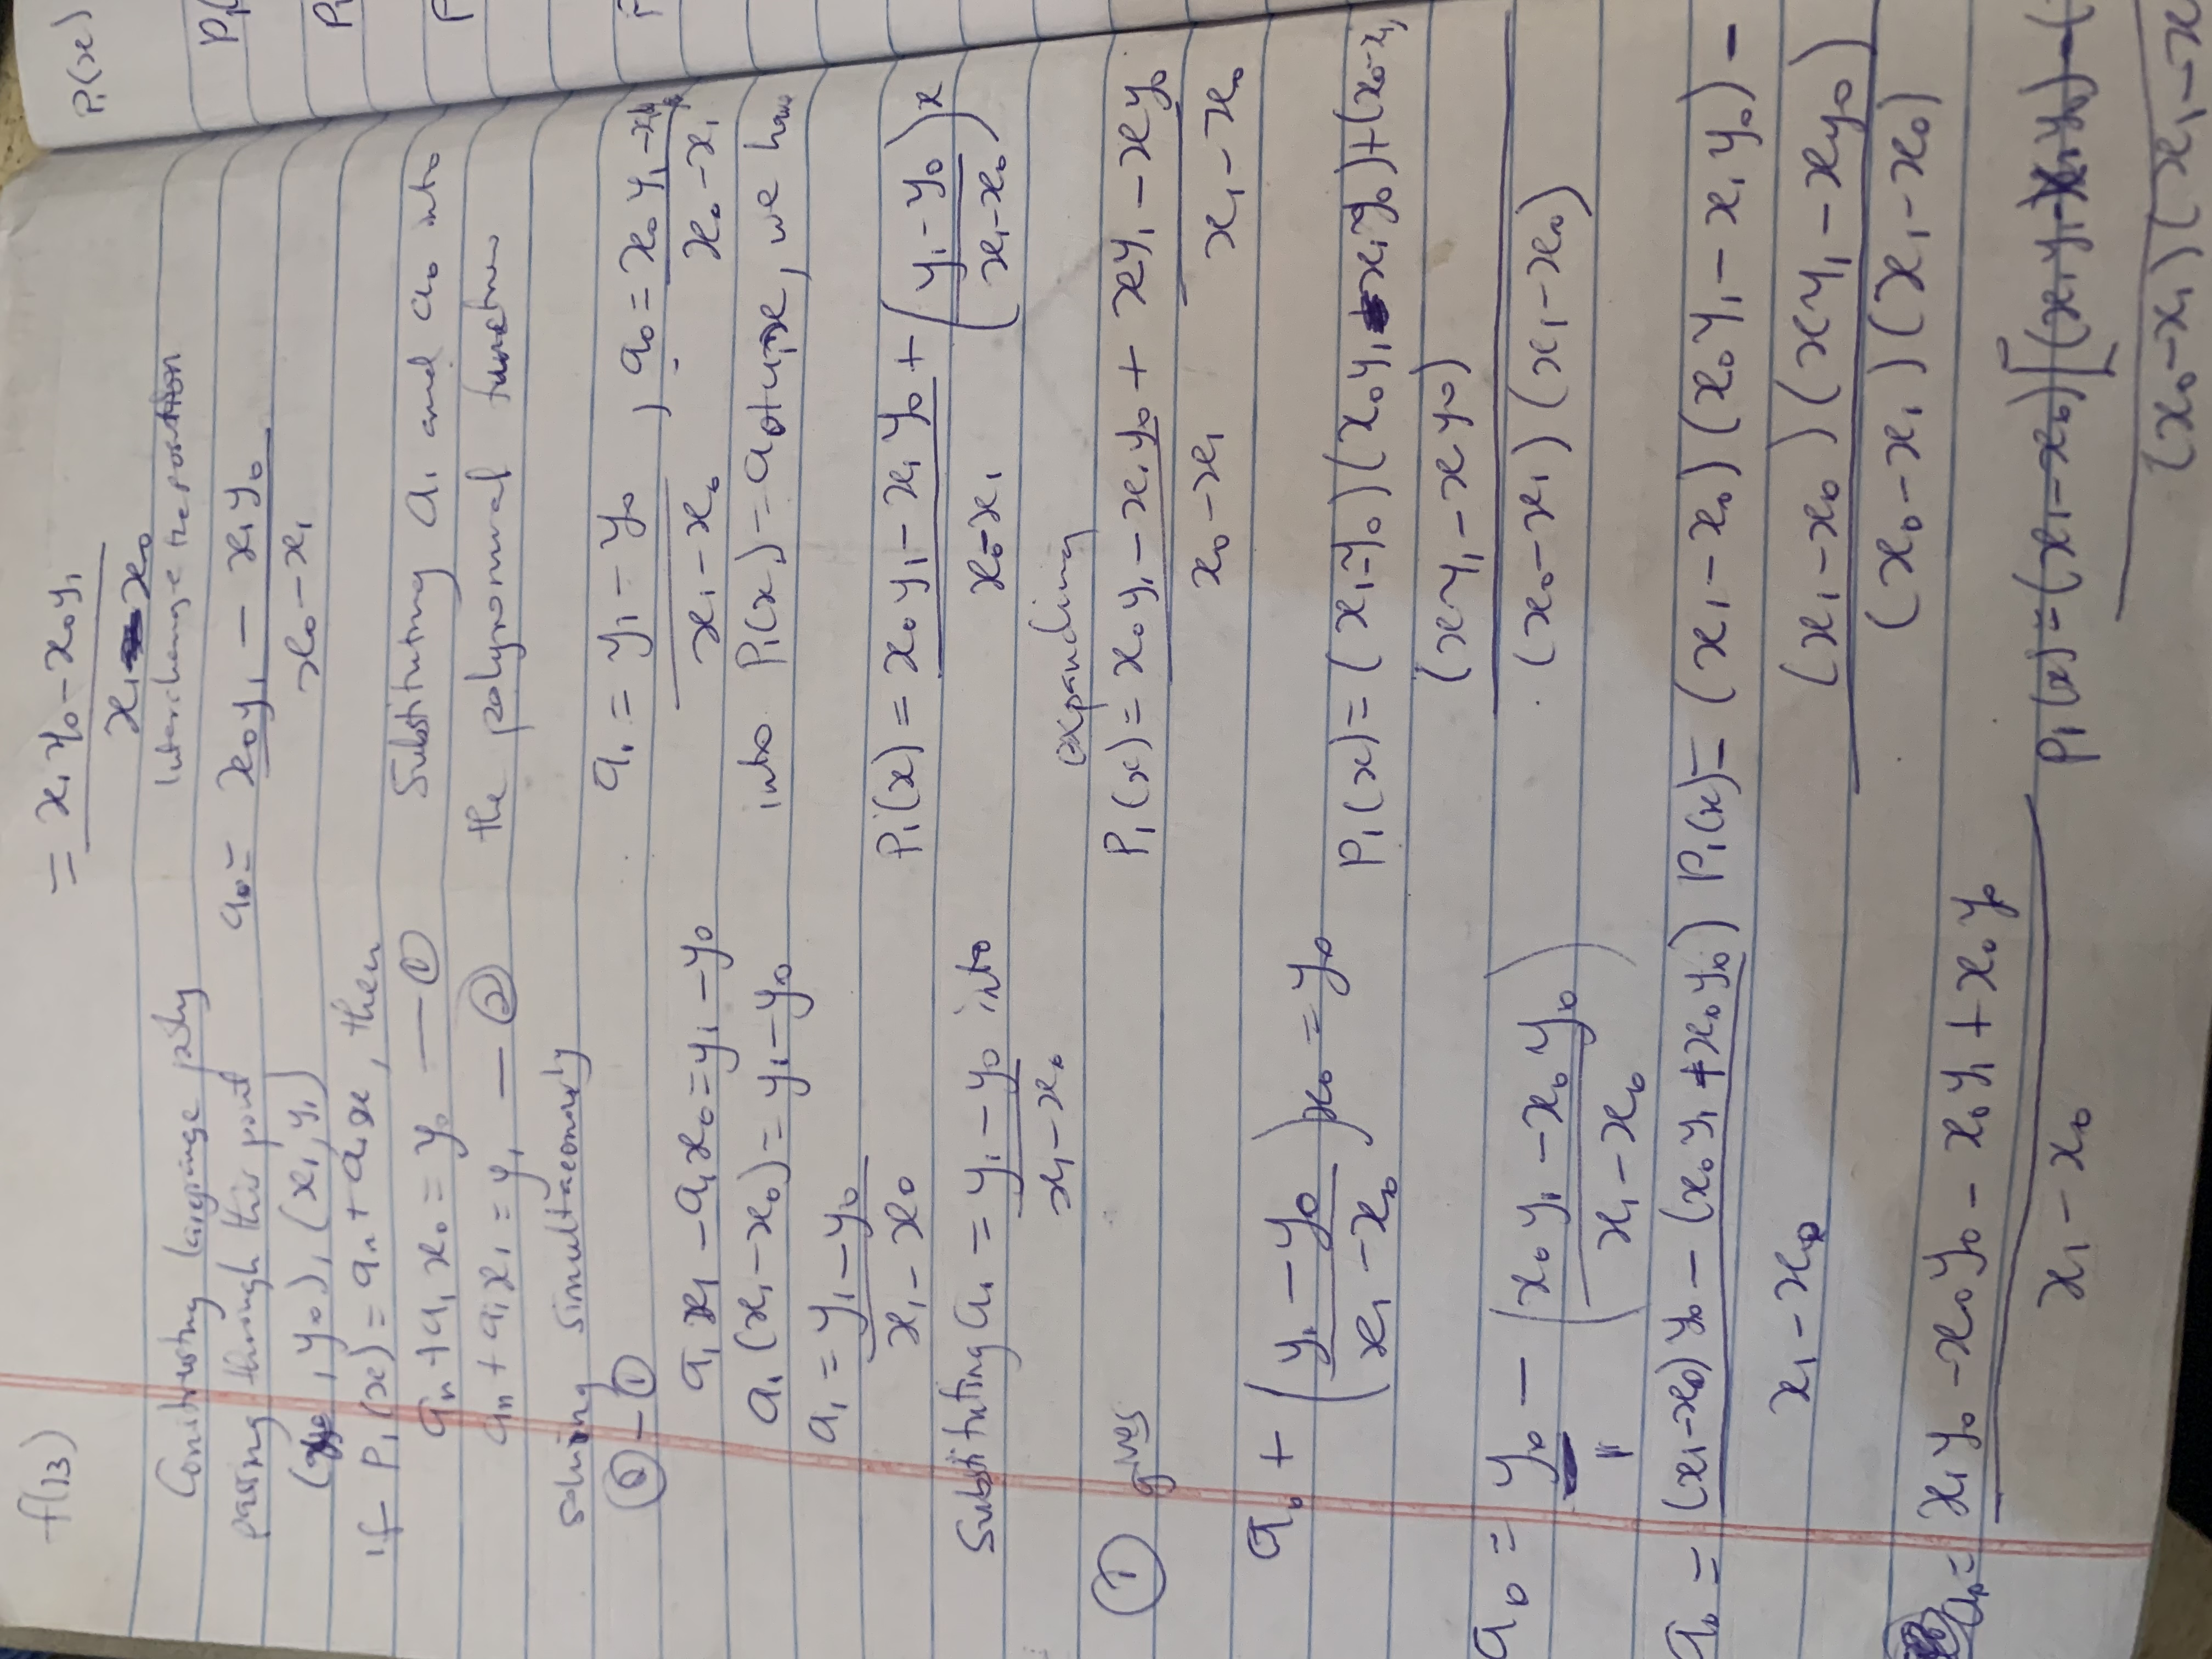 f(13)
Constructing lagrange poly
passing through this point
(x₀, y₀), (x₁, y₁)
If P₁(x) = a₀ + a₁x, then
a₀ + a₁x₀ = y₀ — ①
a₀ + a₁x₁ = y₁ — ②
solving simultaneously
② — ①
a₁x₁ - a₁x₀ = y₁ - y₀
a₁(x₁ - x₀) = y₁ - y₀
a₁ = y₁ - y₀
x₁ - x₀
Substituting a₁ = y₁ - y₀ into
x₁ - x₀
① gives
a₀ + (y₁ - y₀ / x₁ - x₀) x₀ = y₀
a₀ = y₀ - (x₀y₁ - x₀y₀ / x₁ - x₀)
a₀ = (x₁ - x₀)y₀ - (x₀y₁ + x₀y₀)
x₁ - x₀
a₀ = x₁y₀ - x₀y₀ - x₀y₁ + x₀y₀
x₁ - x₀
= x₁y₀ - x₀y₁
x₁ - x₀
Interchange the position
a₀ = x₀y₁ - x₁y₀
x₀ - x₁
Substituting a₁ and a₀ into
the polynomial function
a₁ = y₁ - y₀ / x₁ - x₀ , a₀ = x₀y₁ - x₁y₀ / x₀ - x₁
into P₁(x) = a₀ + a₁x, we have
P₁(x) = x₀y₁ - x₁y₀ / x₀ - x₁ + (y₁ - y₀ / x₁ - x₀) x
expanding
P₁(x) = x₀y₁ - x₁y₀ / x₀ - x₁ + xy₁ - xy₀ / x₁ - x₀
P₁(x) = (x₁ - y₀)(x₀y₁ - x₁y₀) + (x₀ - x₁)
(xy₁ - xy₀)
(x₀ - x₁)(x₁ - x₀)
P₁(x) = (x₁ - x₀)(x₀y₁ - x₁y₀) -
(x₁ - x₀)(xy₁ - xy₀)
(x₀ - x₁)(x₁ - x₀)
P₁(x) = (x₁ - x₀)[
(x₀ - x₁)(x₁ - x
P₁(x)
P₁(
P₁